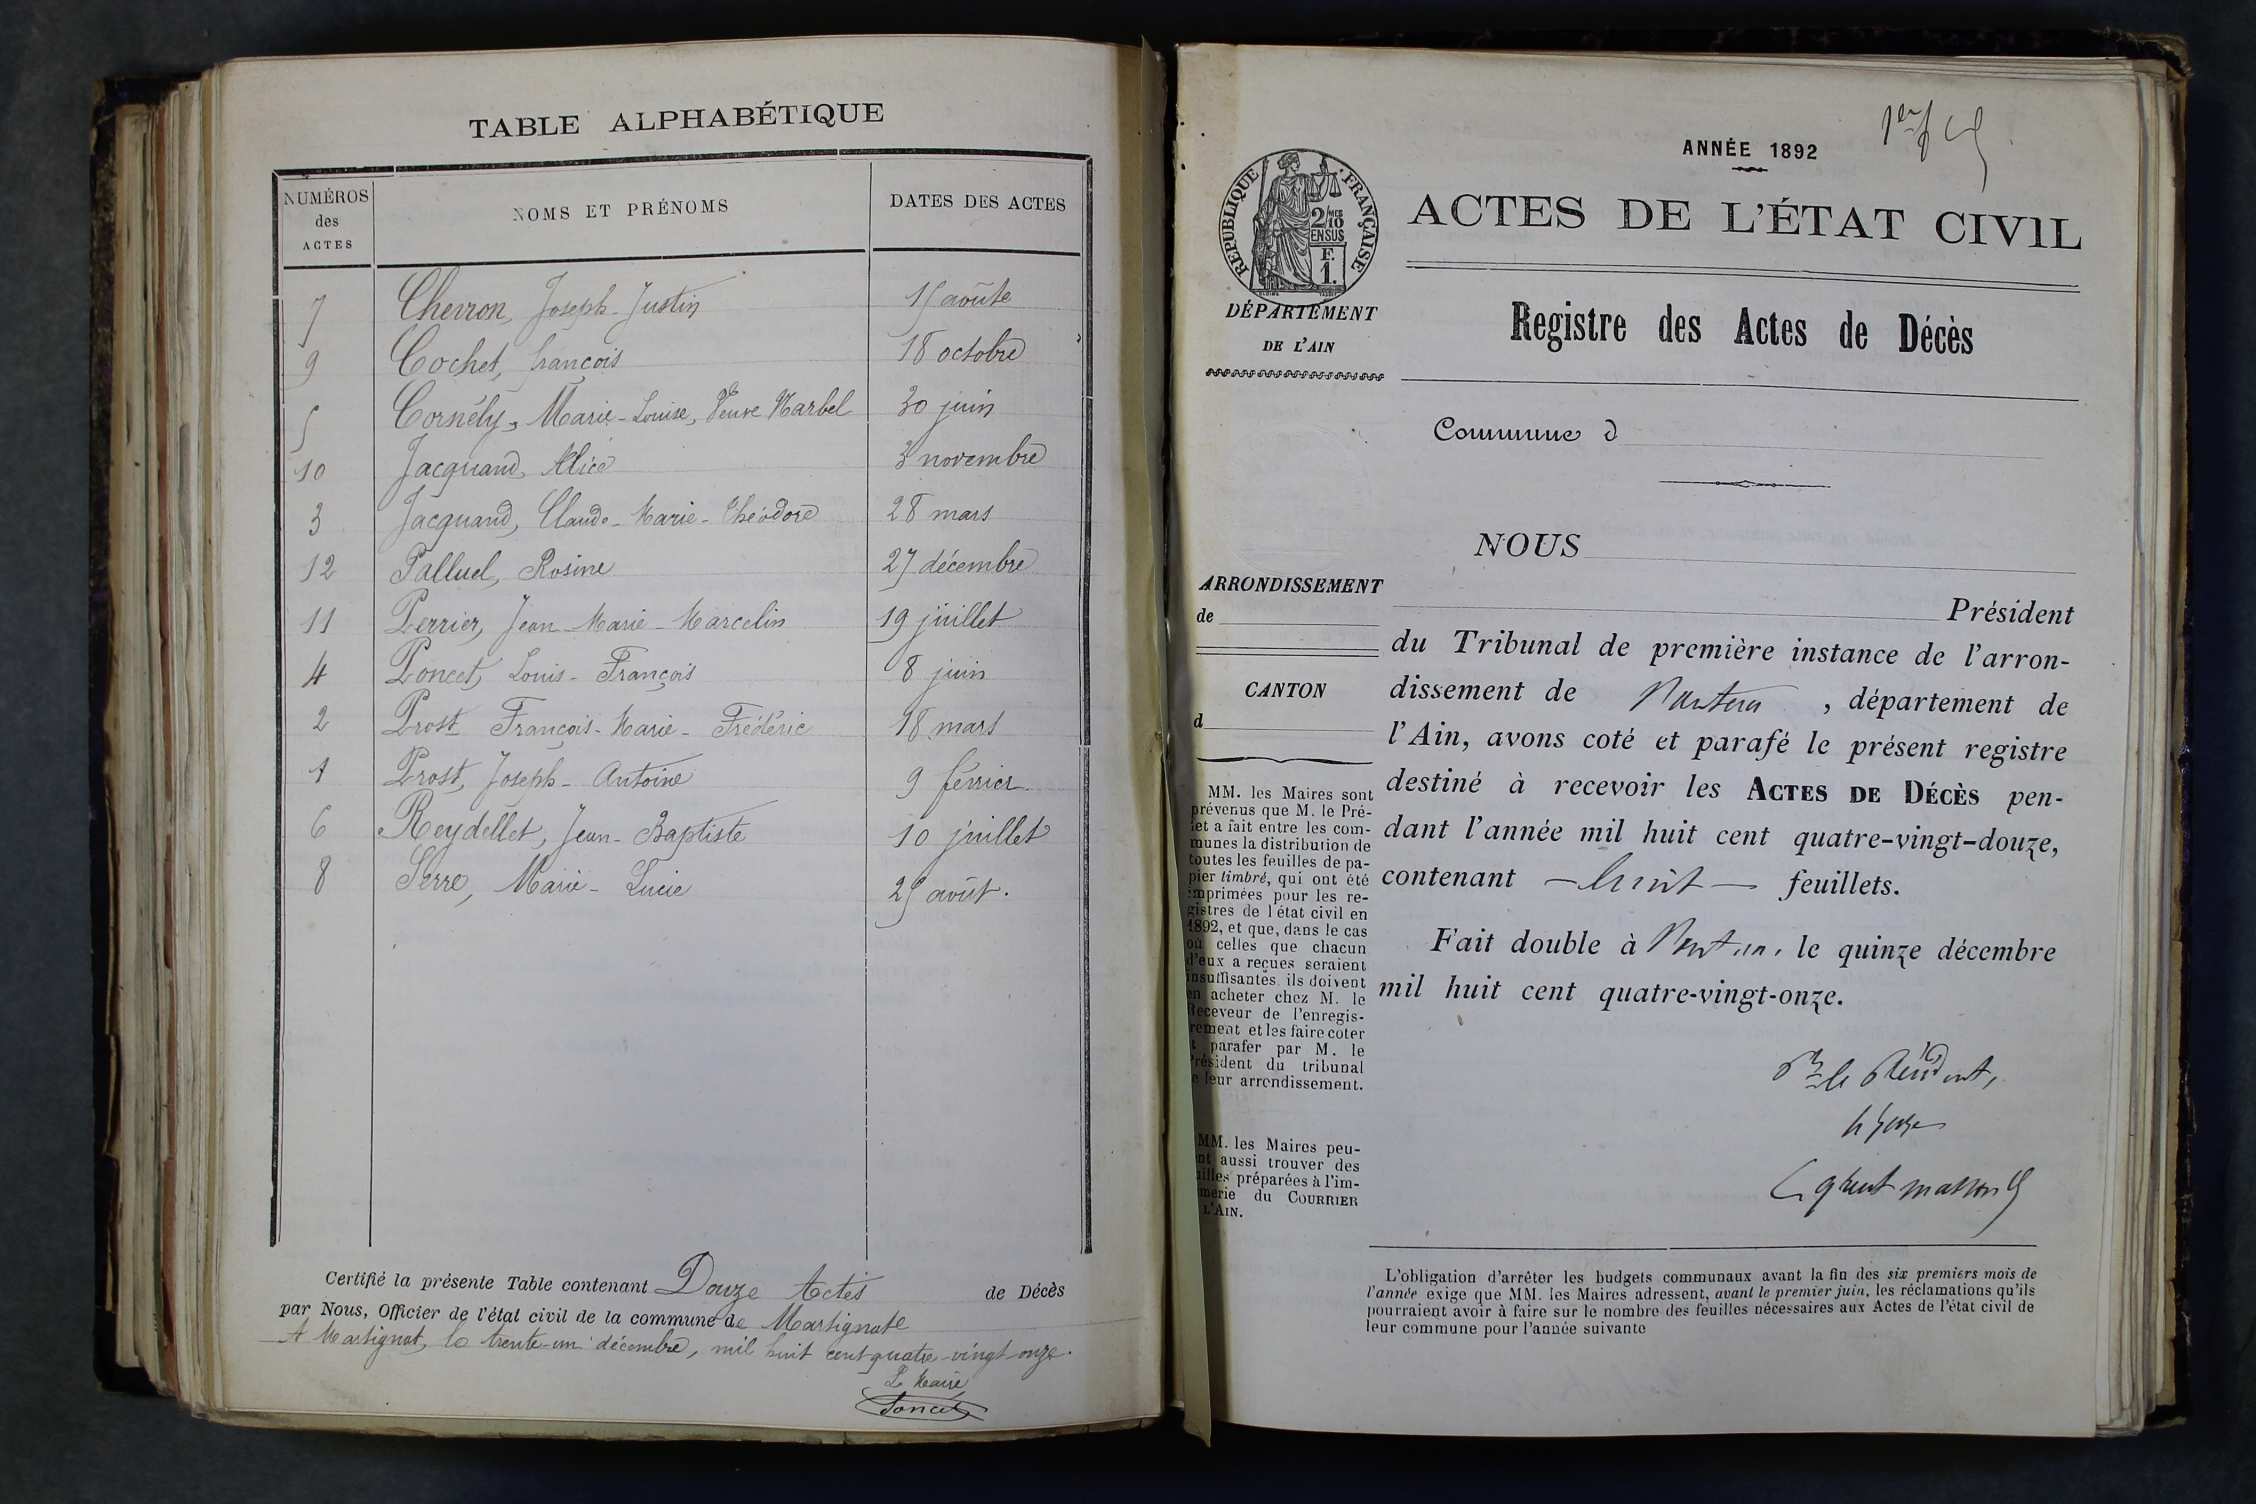 TABLE ALPHABÉTIQUE
NUMÉROS des ACTES NOMS ET PRÉNOMS DATES DES ACTES
7 Chevron, Joseph-Justin 15 aoûte
9 Cochet, francois 18 octobre
5 Cornély, Marie-Louise, Veuve Marbel 30 juin
10 Jacquand, Alice 3 novembre
3 Jacquand, Claude-Marie-Théodore 28 mars
12 Palluel, Rosine 27 décembre
11 Perrier, Jean-Marie-Marcelin 19 juillet
4 Poncet, Louis-François 8 juin
2 Prost François-Marie-Frédéric 18 mars
1 Prost, Joseph-Antoine 9 février
6 Reydellet, Jean-Baptiste 10 juillet
8 Serre, Marie-Lucie 25 août.
Certifié la présente Table contenant Douze Actes de Décès
par Nous, Officier de l'état civil de la commune de Martignate
A Martignat, le trente-un décembre, mil huit cent quatre-vingt onze.
Le Maire
Poncet
1er f
ANNÉE 1892
ACTES DE L'ÉTAT CIVIL
RÉPUBLIQUE FRANÇAISE
2/10 MES
EN SUS
F.
1.
DÉPARTEMENT
DE L'AIN
Registre des Actes de Décès
Commune d
NOUS
ARRONDISSEMENT
de
Président
du Tribunal de première instance de l'arron-
CANTON
d
dissement de Nantua, département de
l'Ain, avons coté et parafé le présent registre
destiné à recevoir les ACTES DE DÉCÈS pen-
dant l'année mil huit cent quatre-vingt-douze,
contenant — huit — feuillets.
Fait double à Nantua, le quinze décembre
mil huit cent quatre-vingt-onze.
Pr le Président,
le juge
MM. les Maires sont
prévenus que M. le Pré-
fet a fait entre les com-
munes la distribution de
toutes les feuilles de pa-
pier timbré, qui ont été
imprimées pour les re-
gistres de l'état civil en
1892, et que, dans le cas
où celles que chacun
d'eux a reçues seraient
insuffisantes, ils doivent
en acheter chez M. le
Receveur de l'enregis-
rement et les faire coter
t parafer par M. le
Président du tribunal
e leur arrondissement.
MM. les Maires peu-
nt aussi trouver des
uilles préparées à l'im-
merie du COURRIER
L'AIN.
L'obligation d'arrêter les budgets communaux avant la fin des six premiers mois de
l'année exige que MM. les Maires adressent, avant le premier juin, les réclamations qu'ils
pourraient avoir à faire sur le nombre des feuilles nécessaires aux Actes de l'état civil de
leur commune pour l'année suivante